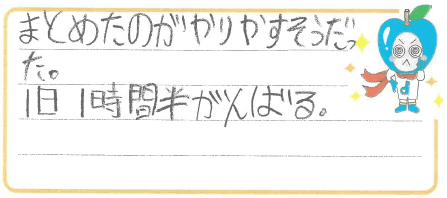 まとめたのがやりやすそうだっ
た。
1日1時間半がんばる。